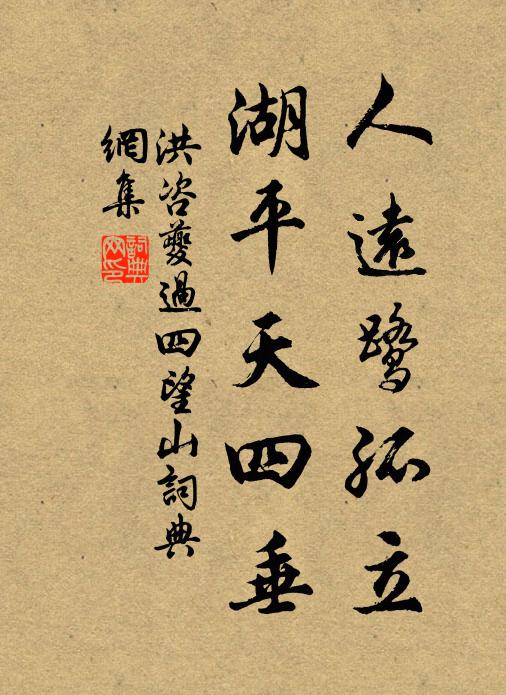 人遠鷺孤立
湖平天四垂
洪咨夔過四望山詞典
網集
詞典
网印